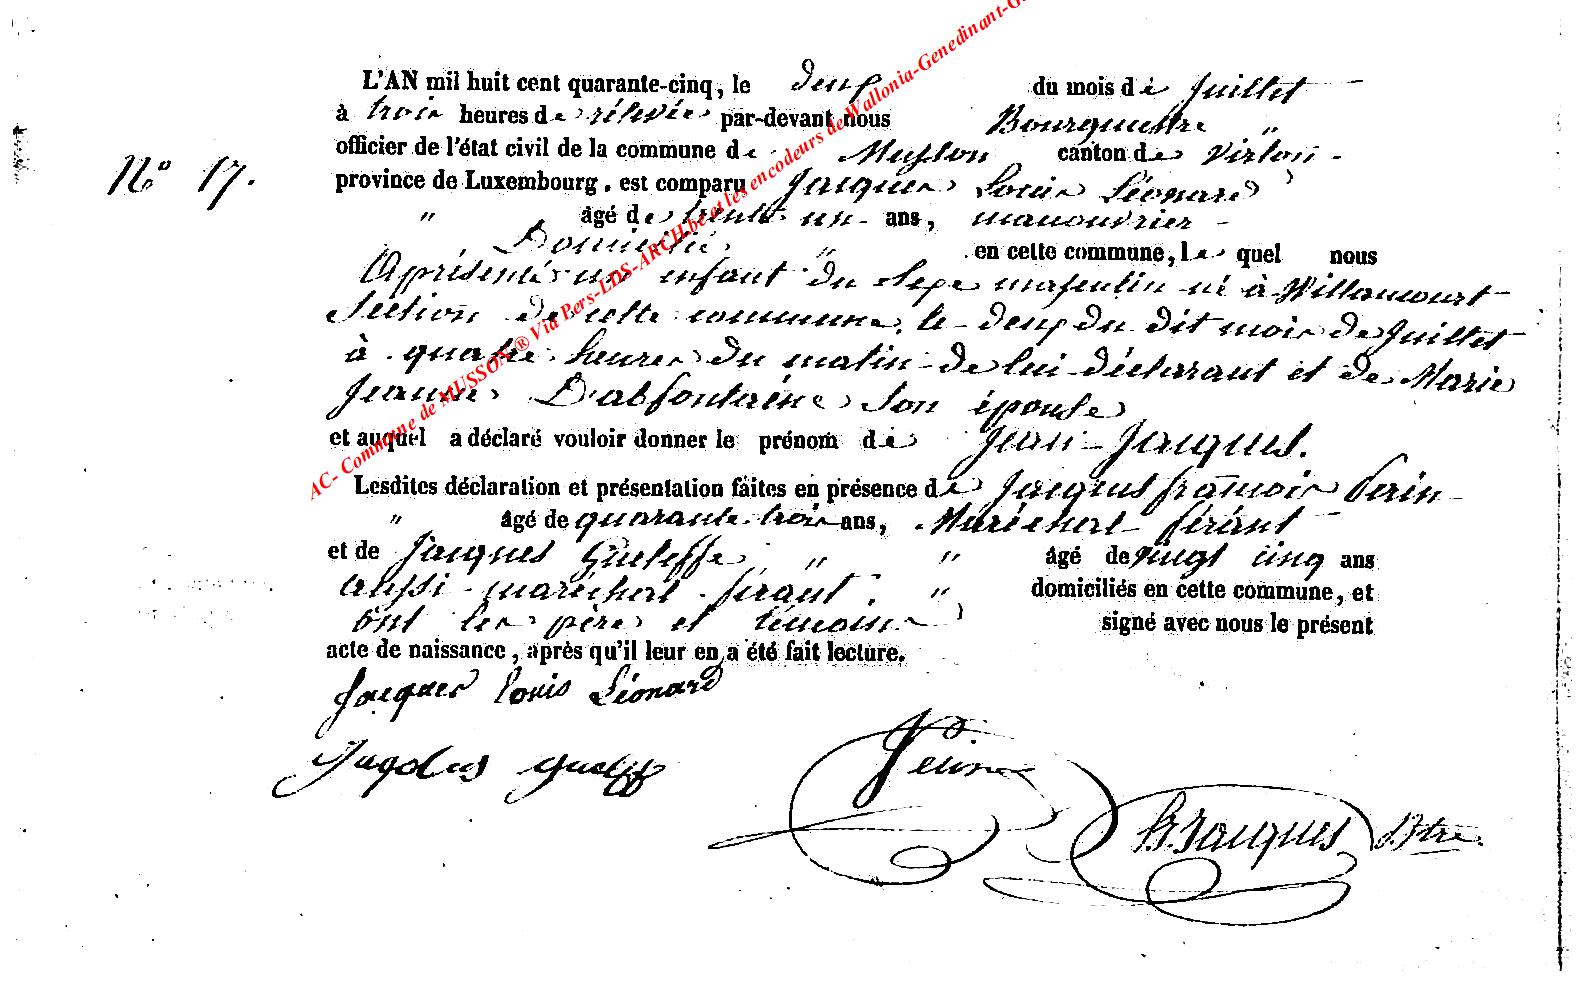 L'AN mil huit cent quarante-cinq, le deux du mois de Juillet
à trois heures de rélevée par-devant nous Bourguemtre "
officier de l'état civil de la commune de Musson canton de Virton -
N° 17. province de Luxembourg, est comparu Jacques Louis Léonard
" âgé de trente un ans, manouvrier -
Domicilié " en cette commune, le quel nous
Aprésenté un enfant du sexe masculin né à Willancourt
Section de cette commune, le deux du dit mois de Juillet
à quatre heures du matin de lui déclarant et de Marie
Jeanne Dabfontaine son épouse
et auquel a déclaré vouloir donner le prénom de Jean-Jacques.
Lesdites déclaration et présentation faites en présence de Jacques françois Perin -
" âgé de quarante-trois ans, Maréchal férant
et de Jacques Gueleffe " " âgé de vingt cinq ans
aussi maréchal férant. " domiciliés en cette commune, et
ont les père et témoins signé avec nous le présent
acte de naissance, après qu'il leur en a été fait lecture.
Jacques Louis Léonard
Jaqoes gueleff
Perin
Jacques Btre.
AC- Commune de MUSSON® Via Pers-LDS-ARCH.be et les encodeurs de Wallonia-Genedinant-G